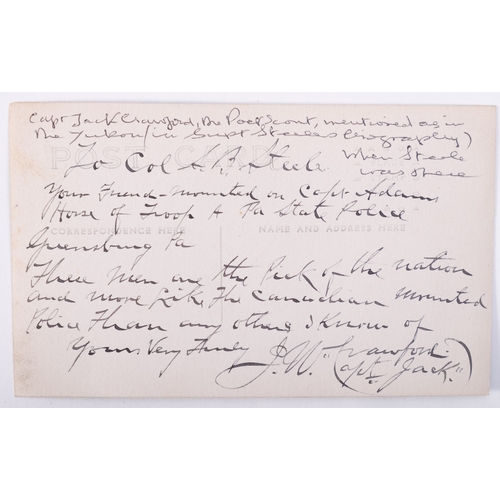 Capt Jack Crawford, the Poet Scout, mentioned as in
the Yukon (in Supt Steeles biography)
when Steele
was there
POST CARD
To Col S. B. Steele
Your Friend - mounted on Capt Adams
Horse of Troop A Pa State Police
CORRESPONDENCE HERE NAME AND ADDRESS HERE
Greensburg Pa
These men are the Pick of the nation
and more like The Canadian mounted
Police Than any others I Know of
Yours Very Truly
J. W. Crawford
(Capt Jack")